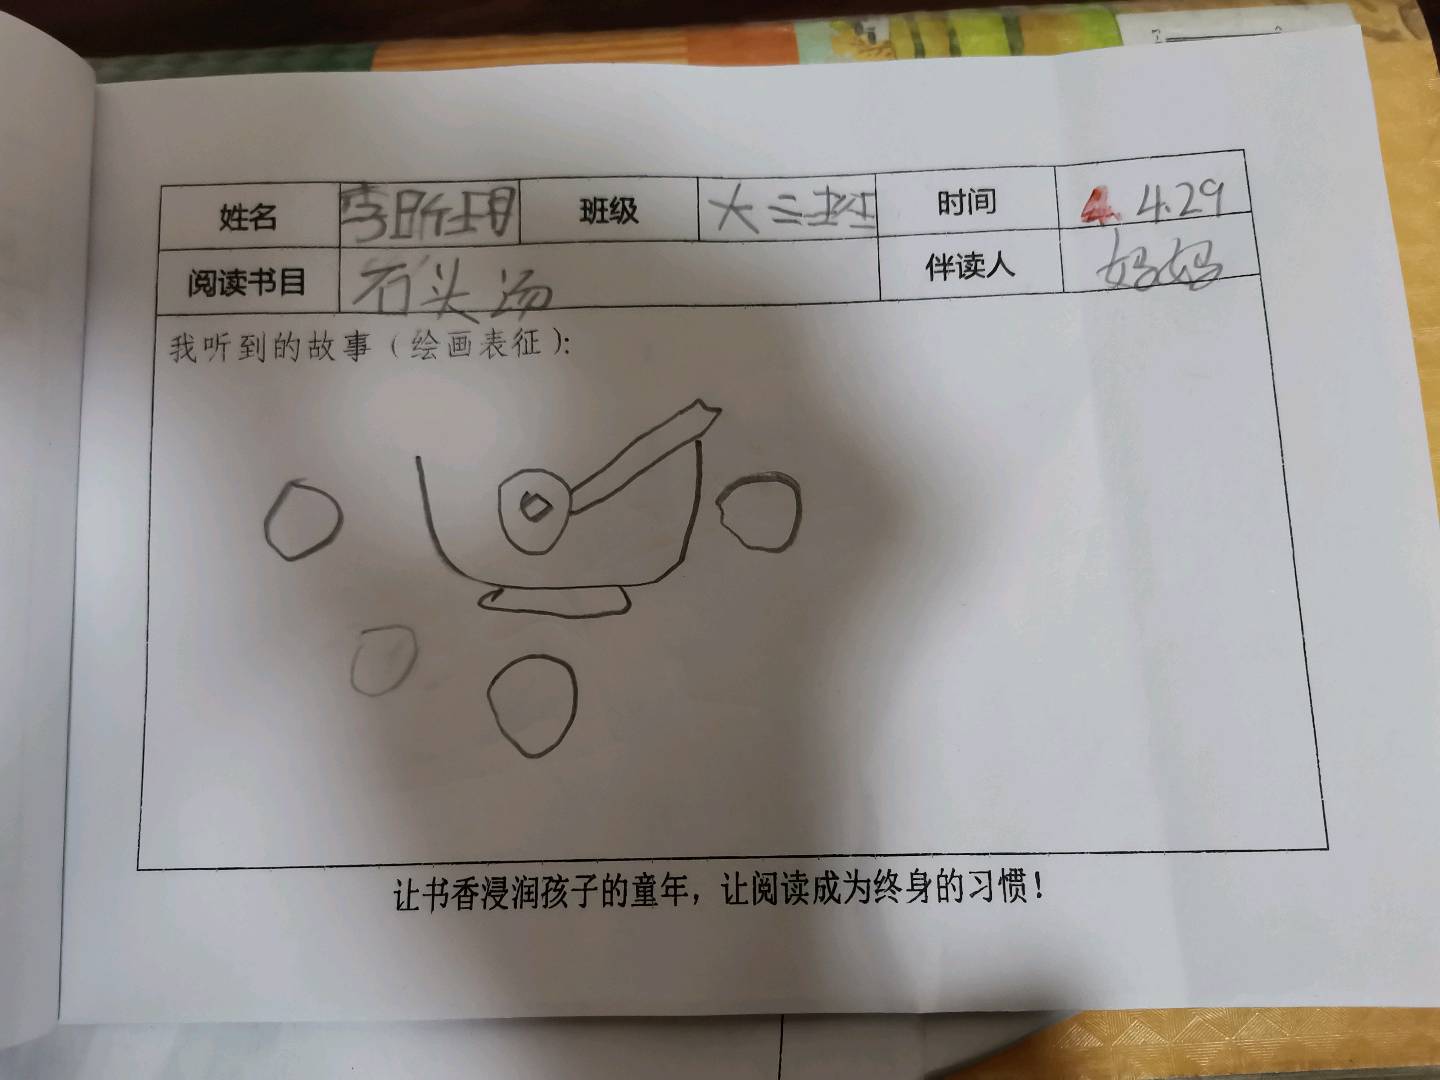 姓名 李昕玥 班级 大三班 时间 4. 4.29
阅读书目 石头汤 伴读人 妈妈
我听到的故事（绘画表征）：
让书香浸润孩子的童年，让阅读成为终身的习惯！